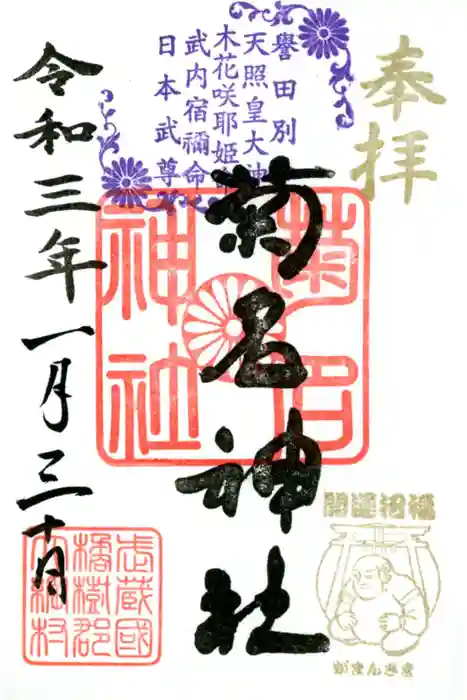 奉拝
譽田別
天照皇大神
木花咲耶姫命
武内宿禰命
日本武尊
菊名神社
菊名
神社
令和三年一月三十日
開運招福
がまんさま
武蔵國
橘樹郡